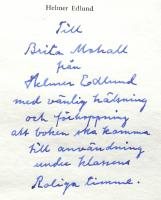 Helmer Edlund
Till
Brita
från
Helmer Edlund
med vänlig hälsning
och förhoppning
att boken ska komma
till användning
under klassens
Roliga timme.